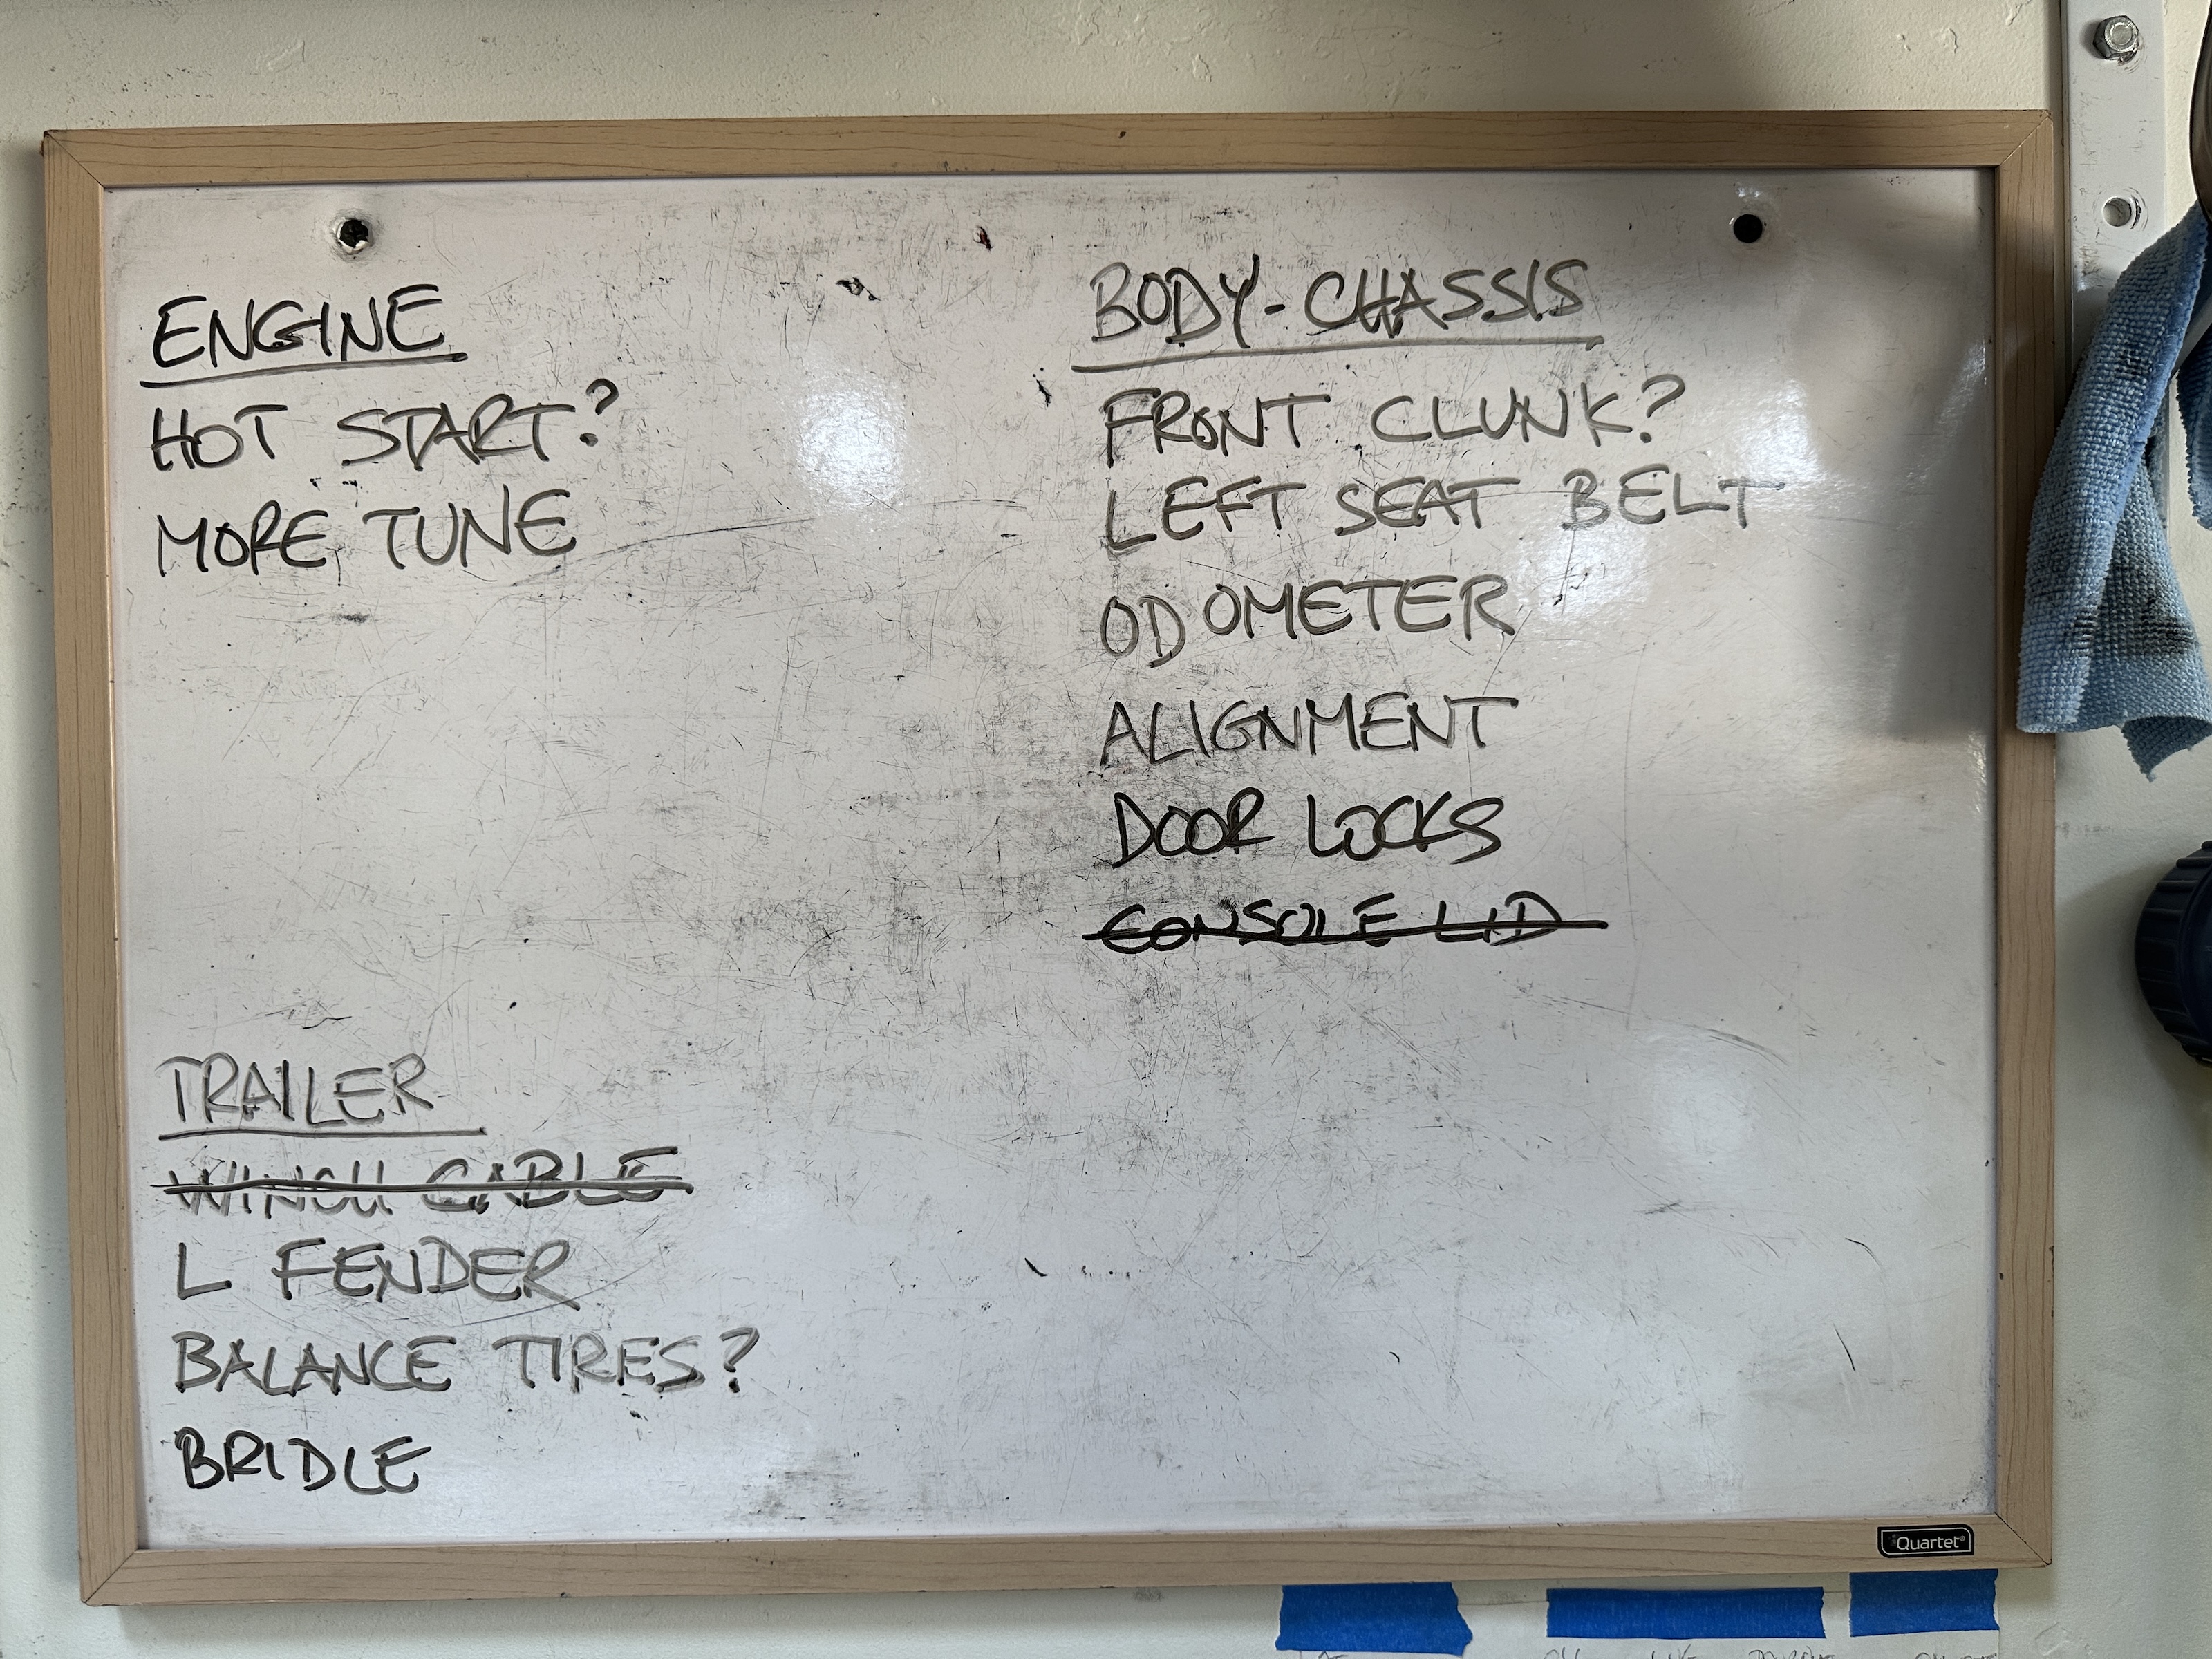 ENGINE
HOT START?
MORE TUNE
TRAILER
WINCH CABLE
L FENDER
BALANCE TIRES?
BRIDLE
BODY-CHASSIS
FRONT CLUNK?
LEFT SEAT BELT
ODOMETER
ALIGNMENT
DOOR LOCKS
CONSOLE LID
Quartet®